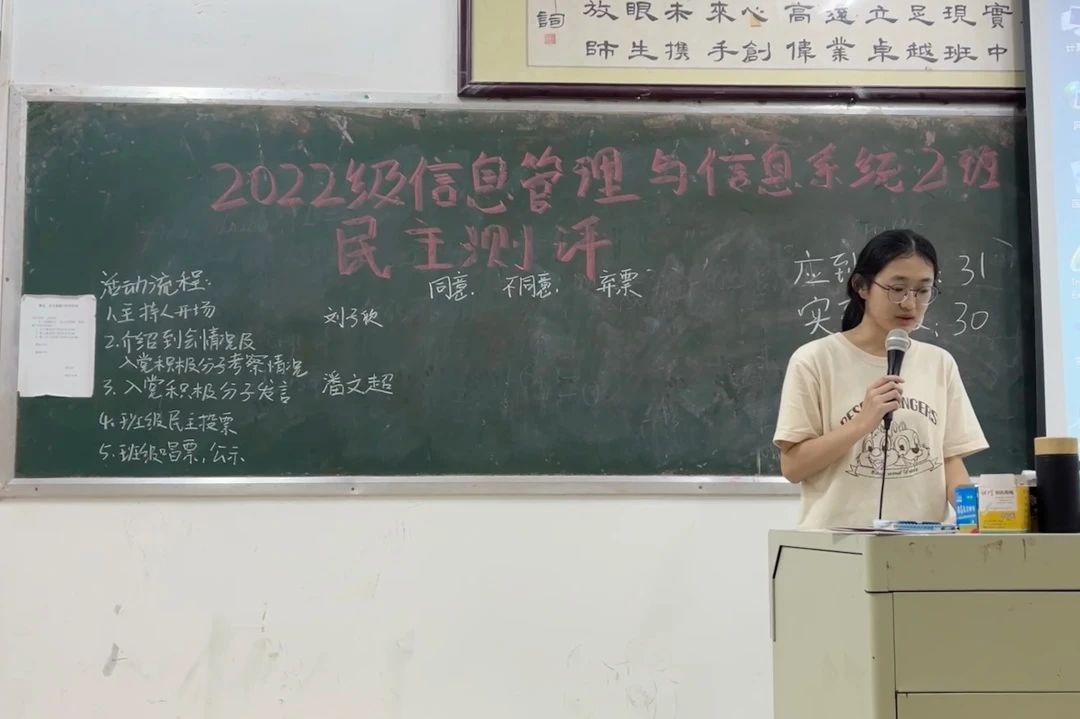 詞 放眼未來心高遠立足現實
師生携手創偉業卓越班中
2022级信息管理与信息系统2班
民主测评
活动流程:
1.主持人开场
2.介绍到会情况及
入党积极分子考察情况
3.入党积极分子发言
4.班级民主投票
5.班级唱票,公示
同意. 不同意. 弃票
刘子欣
潘文超
应到 : 31
实 : 30
RANGERS